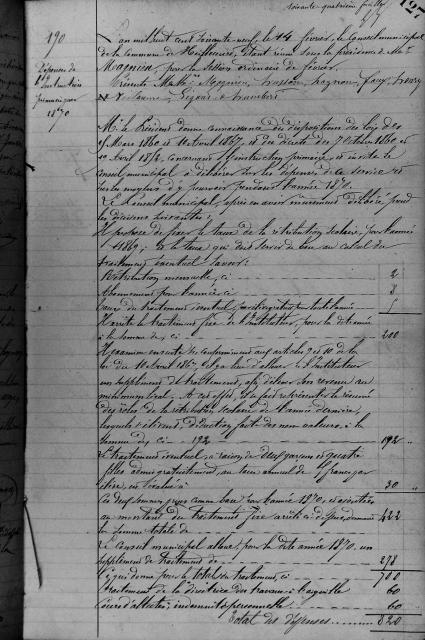 soixante quatrième feuillet
127
190
Dépenses de
l'instruction
primaire pour
1870
L'an mil huit cent soixante neuf, le 14 février, le Conseil municipal
de la commune de étant réuni sous la présidence de Mr
Magnien, pour la session ordinaire de février.
Présents MM. Magnien,
et
M. le Président donne connaissance des dispositions des lois des
15 Mars 1850 et 10 Avril 1867, et des décrets des 7 Octobre 1850 et
concernant l'Instruction primaire, et invite le
Conseil municipal à délibérer sur les dépenses de ce service et
sur les moyens d'y pourvoir pendant l'année 1870.
Le Conseil municipal, après en avoir mûrement délibéré, prend
les décisions suivantes :
Il propose de fixer le taux de la rétribution scolaire, pour l'année
1869, et le taux qui doit servir de base au calcul du
traitement éventuel, savoir :
Rétribution mensuelle, ci 2
Abonnement pour l'année, ci 8
Taux du traitement éventuel pour les gratuits pour toute l'année
Il arrête le traitement fixe de l'Instituteur, pour la dite année
à la somme de, ci 200
Il examine ensuite, conformément aux articles 9 et 10 de la
loi du 10 Avril 1867, s'il y a lieu d'allouer à l'Instituteur
un supplément de traitement, afin d'élever son revenu au
minimum légal. A cet effet, il se fait représenter le résumé
des rôles de la rétribution scolaire de l'année dernière,
lesquels s'élèvent, déduction faite des non valeurs, à la
somme de, ci 192 192 "
Le traitement éventuel, à raison de deux garçons et quatre
filles admis gratuitement, au taux annuel de 5 francs par
élève, est évalué à 30 "
Ces deux sommes, prises comme base pour l'année 1870, et ajoutées
au montant du traitement fixe arrêté ci-dessus, donnent 422
une somme totale de
Le Conseil municipal alloue, pour la dite année 1870, un
supplément de traitement de 278
Ce qui donne pour le total du traitement, ci 700
Traitement de la directrice des travaux à l'aiguille 60
indemnité personnelle 60
Total des dépenses 820